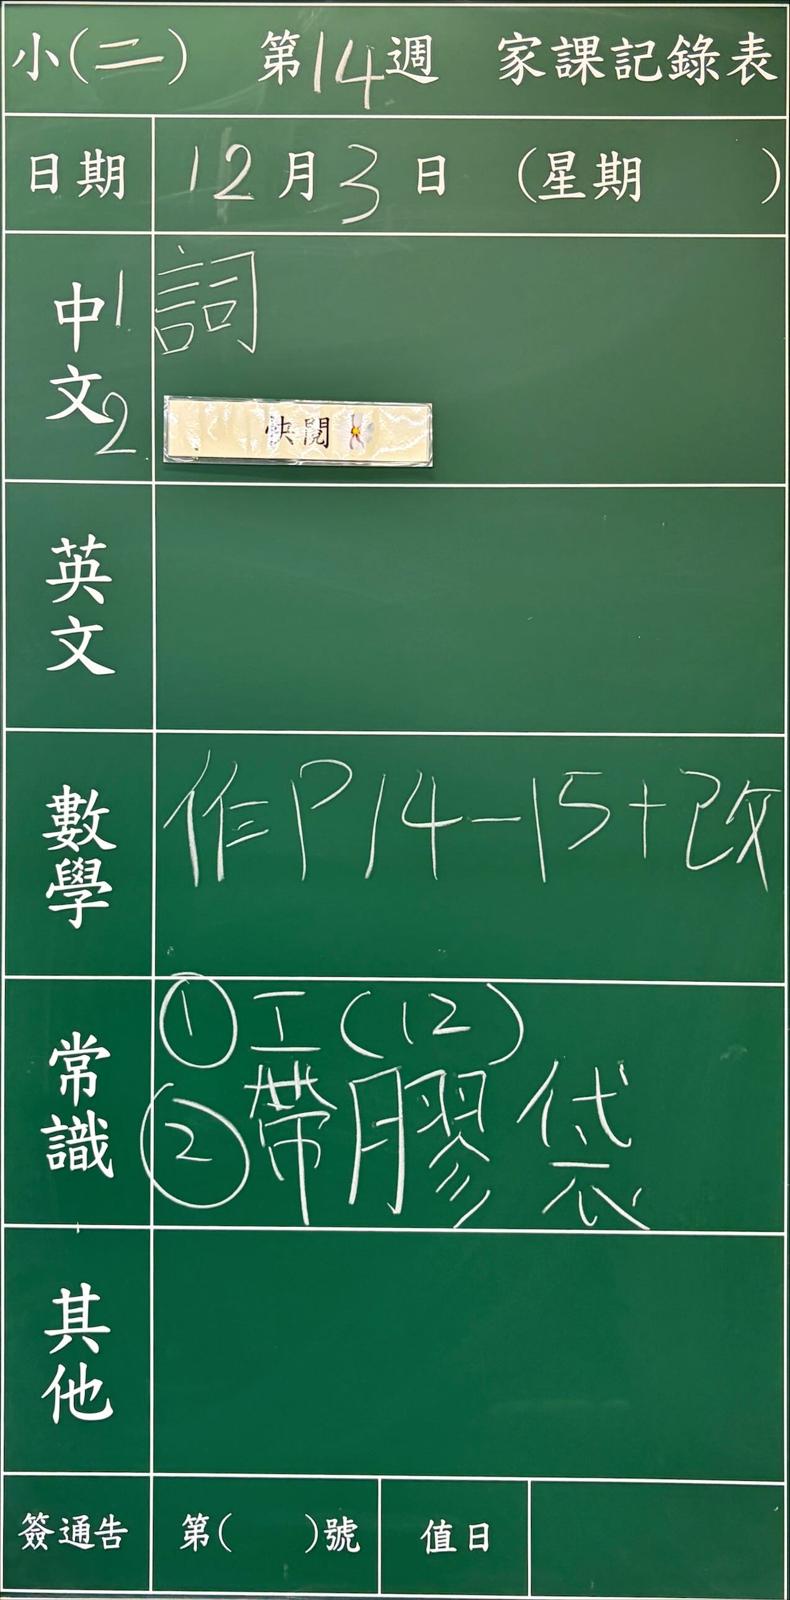 小(二) 第14週 家課記錄表
日期 12月3日 (星期 )
中文 1 詞
2 快閱
英文
數學 作P14-15+改
常識 ①工(12)
②帶膠袋
其他
簽通告 第( )號 值日